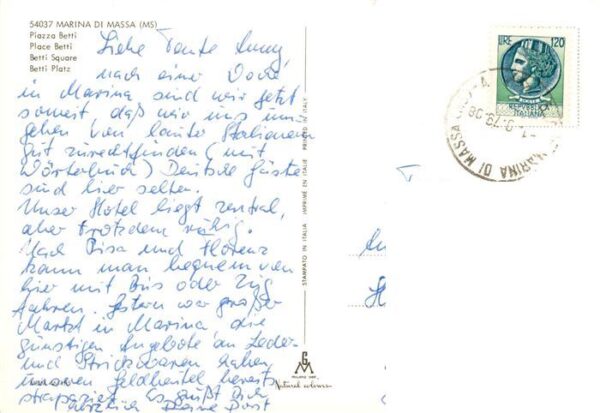 54037 MARINA DI MASSA (MS)
Piazza Betti
Place Betti
Betti Square
Betti Platz
Liebe Tante Anny,
nach einer Woche
in Marina sind wir jetzt
soweit, daß wir uns um-
geben von lauter Italienern
gut zurechtfinden (mit
Wörterbuch) Deutsche Gäste
sind hier selten.
Unser Hotel liegt zentral,
aber trotzdem ruhig.
Nach Pisa und Florenz
kann man bequem von
hier mit Bus oder Zug
fahren. Gestern war großer
Markt in Marina, die
günstigen Angebote an Leder-
und Strickwaren haben
unseren Geldbeutel bereits
strapaziert. Es grüßt Dich
herzlich Deine
STAMPATO IN ITALIA IMPRIMÉ EN ITALIE PRINTED IN ITALY
Natural colours
LIRE 120
REPUBBLICA
ITALIANA
MARINA DI MASSA